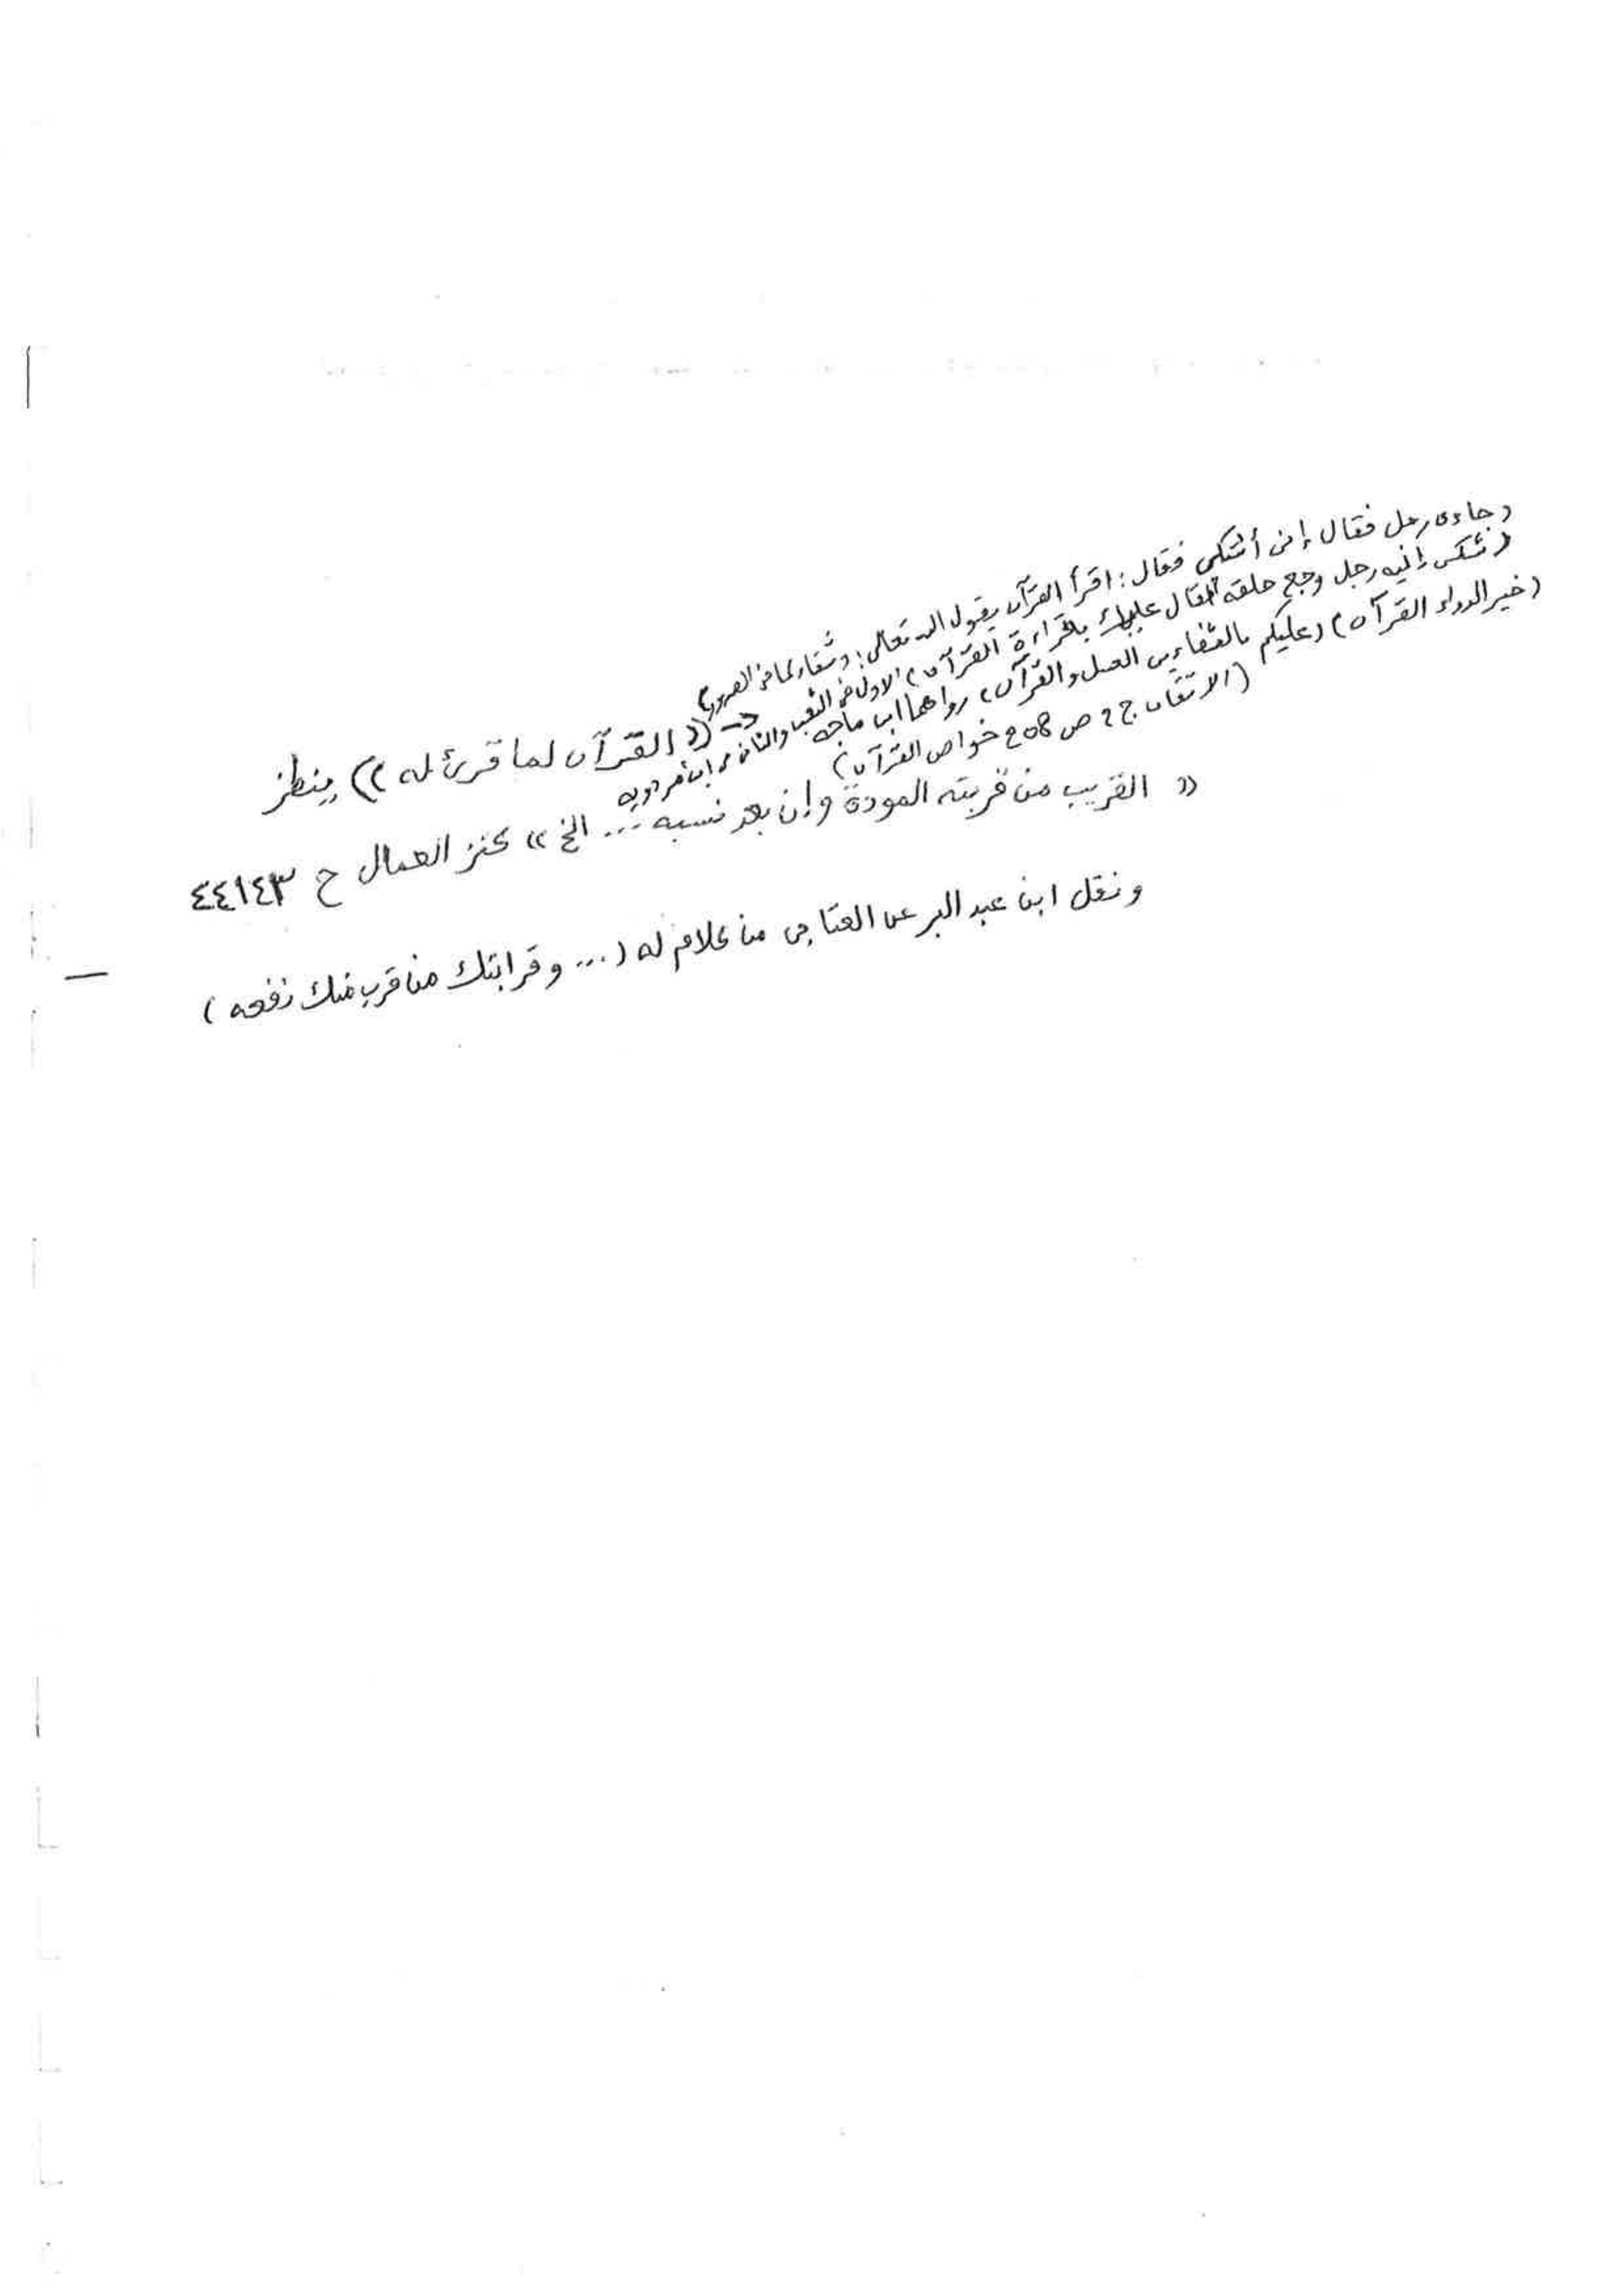 (جاءه رجل فقال إني أشتكي فقال: اقرأ القرآن يقول الله تعالى: وشفاء لما في الصدور)
(شكى إليه رجل وجع حلقه قال عليك بقراءة القرآن) الاول في الشعب والثاني ابن مردويه
(خير الدواء القرآن) (عليكم بالشفاءين العسل والقرآن) رواهما ابن ماجه
(الاتقان ج ٢ ص خواص القرآن)
(( القرآن لما قرئ له )) ينظر
« القريب من قربته المودة وإن بعد نسبه ... الخ » كنز العمال ح ٤٤١٤٣
ونقل ابن عبد البر عن العتابي من كلام له (... وقرابتك من قرب منك نفعه)